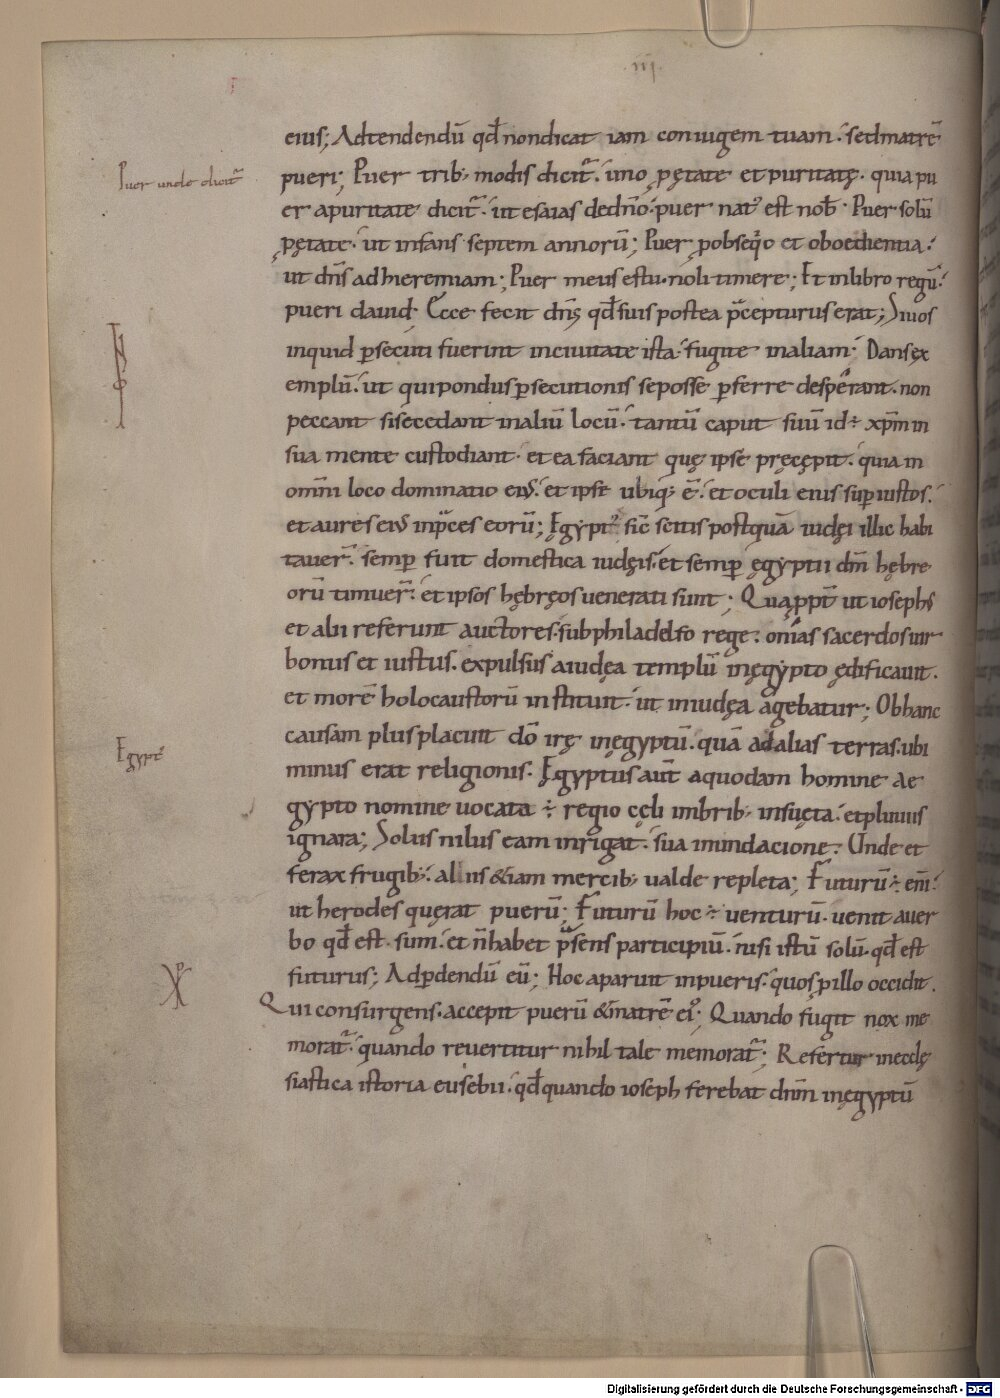 .iij.
eius; Adtendendū qđ non dicat iam coniugem tuam. sed matrē
Puer unde dicit᷑
pueri; Puer trib; modis dicit᷑. imo p̱ ętate et puritatę. quia pu
er a puritate dicit᷑. ut esaias de dn̄o. puer nat᷒ est nob̄. Puer solū
p̱ ętate. ut infans septem annorū; Puer p̱ obseq̊o et oboedientia.
ut dn̄s ad hieremiam; Puer meus es tu. noli timere; Et in libro regū.
pueri dauid. Ecce fecit dn̄s qđ suis postea p̄cepturus erat; Si uos
inquid p̱secuti fuerint in ciuitate ista. fugite in aliam. Dans ex
emplū. ut qui pondus p̱secutionis se posse p̱ferre desperant. non
peccant si secedant in aliū locū. tantū caput suū id ÷ xp̄m in
sua mente custodiant. et ea faciant quę ipse pręcępit. quia in
omni loco dominatio ei᷒. et ipse ubiq; ē. et oculi eius sup̱ iustos.
et aures ei᷒ in p̄ces eorū; Egypt᷒ sic̄ scitis postquā iudęi illic habi
tauer̄. semp̱ fuit domestica iudęis. et semp̱ ęgyptii dm̄ hębre
orū timuer̄. et ipsos hębręos uenerati sunt; Quap̱pt̄ ut iosephs
et alii referunt auctores. sub philadelfo rege. onias sacerdos uir
bonus et iustus. expulsus a iudęa templū in ęgypto ędificauit.
et morē holocaustorū instituit. ut in iudęa agebatur; Ob hanc
Egypt᷒
causam plus placuit dō irę in ęgyptū. quā ad alias terras. ubi
minus erat religionis. Egyptus aūt a quodam homine ae
gypto nomine uocata ÷ regio cęli imbrib; insuęta. et pluuiis
ignara; Solus nilus eam inrigat. sua inundacione. Unde et
ferax frugib;. aliis &iam mercib; ualde repleta; Futurū ÷ enī.
ut herodes quęrat puerū; Futurū hoc ÷ uenturū. uenit a uer
bo qđ est. sum. et n̄ habet p̄sens participiū. nisi istū solū. qđ est
futurus; Ad p̱dendū eū; Hoc aparuit in pueris. quos p̱ illo occidit.
Qui consurgens. accepit puerū & matrē ei᷒; Quando fugit nox me
morat᷑. quando reuertitur nihil tale memorat᷑; Refertur in ecclę
siastica istoria eusebii. qđ quando ioseph ferebat dn̄m in ęgyptū